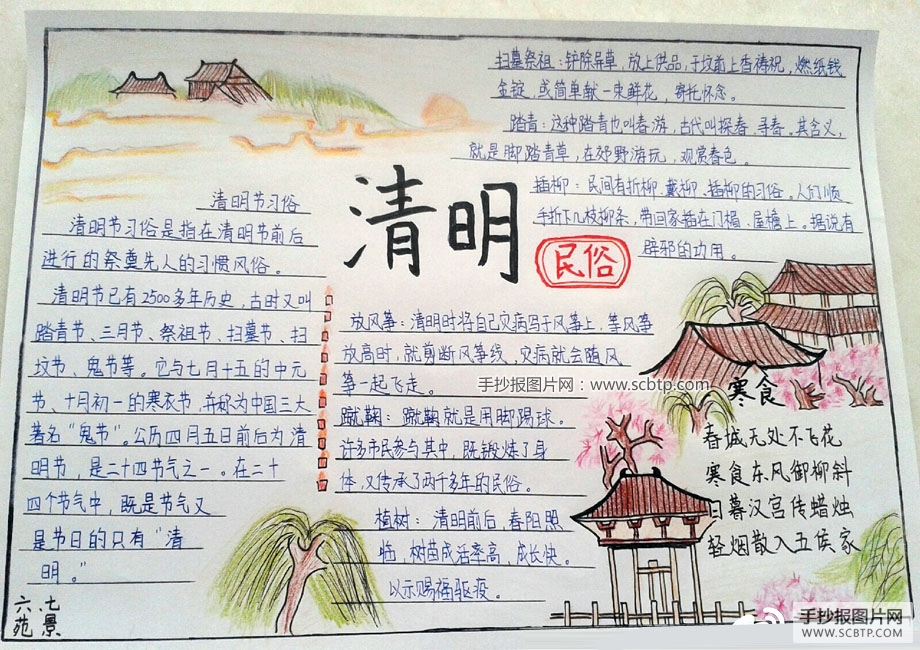 清明
民俗
清明节习俗
清明节习俗是指在清明节前后
进行的祭奠先人的习惯风俗。
清明节已有2500多年历史,古时又叫
踏青节、三月节、祭祖节、扫墓节、扫
坟节、鬼节等。它与七月十五的中元
节、十月初一的寒衣节,并称为中国三大
著名“鬼节”。公历四月五日前后为清
明节,是二十四节气之一。在二十
四个节气中,既是节气又
是节日的只有“清
明。”
扫墓祭祖:铲除杂草,放上供品,于坟前上香祷祝,燃纸钱
金锭,或简单献一束鲜花,寄托怀念。
踏青:这种踏青也叫春游,古代叫探春、寻春。其含义,
就是脚踏青草,在郊野游玩,观赏春色。
插柳:民间有折柳、戴柳、插柳的习俗。人们顺
手折下几枝柳条,带回家插在门楣、屋檐上。据说有
辟邪的功用。
放风筝:清明时将自己灾病写于风筝上,等风筝
放高时,就剪断风筝线,灾病就会随风
筝一起飞走。
蹴鞠:蹴鞠就是用脚踢球。
许多市民参与其中,既锻炼了身
体,又传承了两千多年的民俗。
植树:清明前后,春阳照
临,树苗成活率高、成长快。
以示赐福驱疫。
寒食
春城无处不飞花
寒食东风御柳斜
日暮汉宫传蜡烛
轻烟散入五侯家
六、七
苑景
手抄报图片网:www.scbtp.com
手抄报图片网
WWW.SCBTP.COM